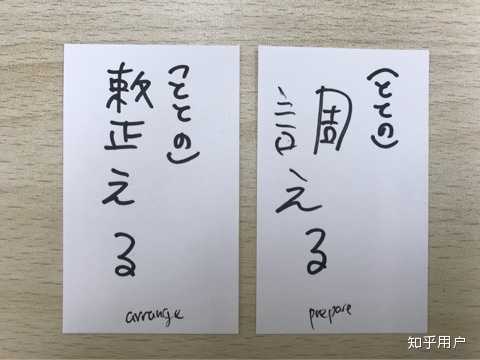 整える
(ととの)
arrange
調える
(ととの)
prepare
知乎用户